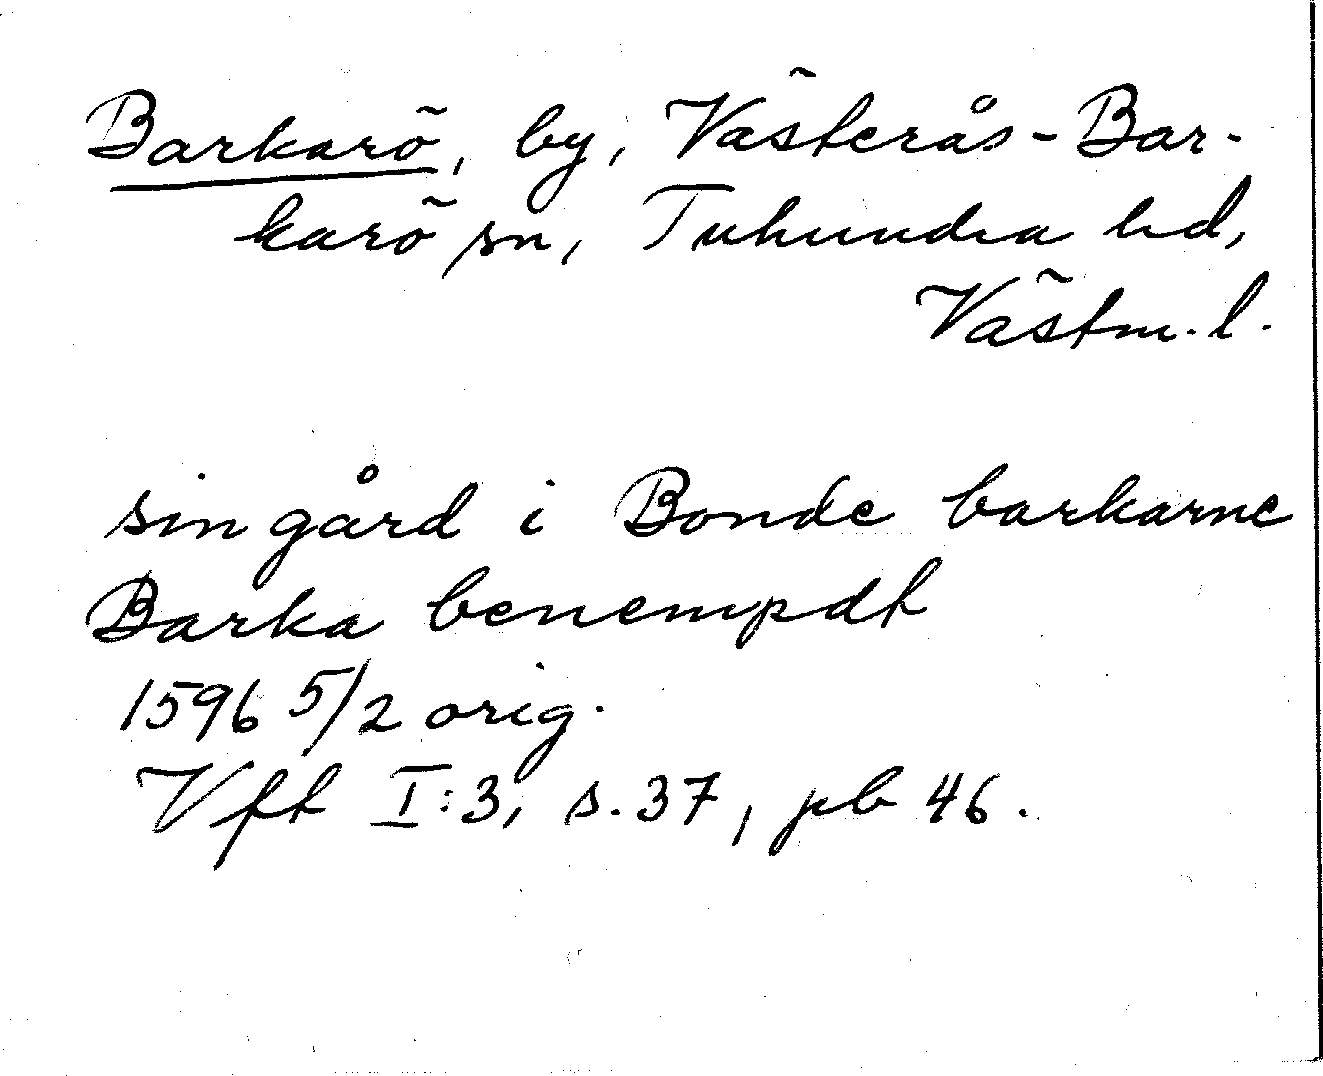 Barkarö, by, Västerås-Bar-
karö sn, Tuhundra hd,
Västm. l.
sin gård i Bonde barkarne
Barka benempdt
1596 5/2 orig.
Vft I:3, s. 37, pb 46.